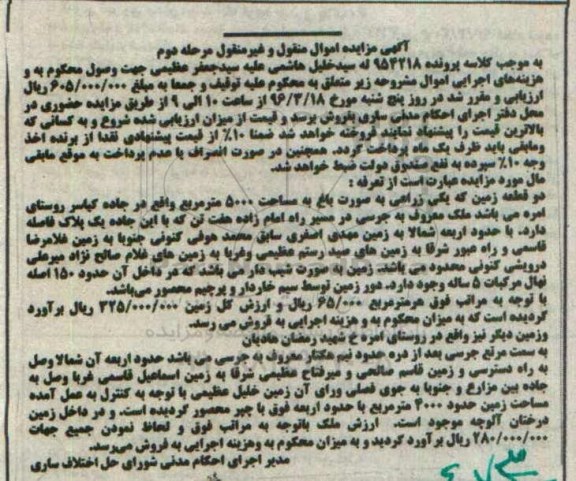 آگهی مزایده اموال منقول و غیرمنقول مرحله دوم
به موجب کلاسه پرونده ۹۵۴۲۱۸ له سیدخلیل هاشمی علیه سیدجعفر عظیمی جهت وصول محکوم به و
هزینه‌های اجرایی اموال مشروحه زیر متعلق به محکوم علیه توقیف و جمعا به مبلغ ۶۰۵/۰۰۰/۰۰۰ ریال
ارزیابی و مقرر شد در روز پنج شنبه مورخ ۹۶/۳/۱۸ از ساعت ۱۰ الی ۹ از طریق مزایده حضوری در
محل دفتر اجرای احکام مدنی ساری بفروش برسد و قیمت از میزان ارزیابی شده شروع و به کسانی که
بالاترین قیمت را پیشنهاد نمایند فروخته خواهد شد ضمنا ۱۰٪ از قیمت پیشنهادی نقدا از برنده اخذ
ومابقی باید ظرف یک ماه پرداخت گردد. همچنین در صورت انصراف یا عدم پرداخت به موقع مابقی
وجه ۱۰٪ سپرده به نفع صندوق دولت ضبط خواهد شد.
مال مورد مزایده عبارت است از تعرفه :
دو قطعه زمین که یکی زراعی به صورت باغ به مساحت ۵۰۰۰ مترمربع واقع در جاده کیاسر روستای
امره می باشد ملک معروف به جرسی در مسیر راه امام زاده هفت تن که با این جاده یک پلاک فاصله
دارد. با حدود اربعه شمالا به زمین مهدی اصغری سابق محمد هوفی کنونی جنوبا به زمین غلامرضا
قاسمی و راه عبور شرقا به زمین های سید رستم عظیمی وغربا به زمین های غلام صالح نژاد میرعلی
درویشی کنونی محدود می باشد. زمین به صورت شیب دار می باشد که در داخل آن حدود ۱۵۰ اصله
نهال مرکبات ۵ ساله وجود دارد. دور زمین توسط سیم خاردار و پرچیم محصور می‌باشد.
با توجه به مراتب فوق هرمترمربع ۶۵/۰۰۰ ریال و ارزش کل زمین ۳۲۵/۰۰۰/۰۰۰ ریال برآورد
گردیده است که به میزان محکوم به و هزینه اجرایی به فروش می رسد.
وزمین دیگر نیز واقع در روستای امره خ شهید رمضان هادیان
به سمت مرتع جرسی بعد از دره حدود نیم هکتار معروف به جرسی می باشد حدود اربعه آن شمالا وصل
به راه دسترسی و زمین قاسم صالحی و میرفتاح عظیمی شرقا به زمین اسماعیل قاسمی غربا وصل به
جاده بین مزارع و جنوبا به جوی فصلی ورای آن زمین خلیل عظیمی با توجه به کنترل به عمل آمده
مساحت زمین حدود ۴۰۰۰ مترمربع با حدود اربعه فوق با چپر محصور گردیده است. و در داخل زمین
درختان آلوچه موجود است. ارزش ملک باتوجه به مراتب فوق و لحاظ نمودن جمیع جهات
۲۸۰/۰۰۰/۰۰۰ ریال برآورد گردید و به میزان محکوم به وهزینه اجرایی به فروش می‌رسد.
مدیر اجرای احکام مدنی شورای حل اختلاف ساری